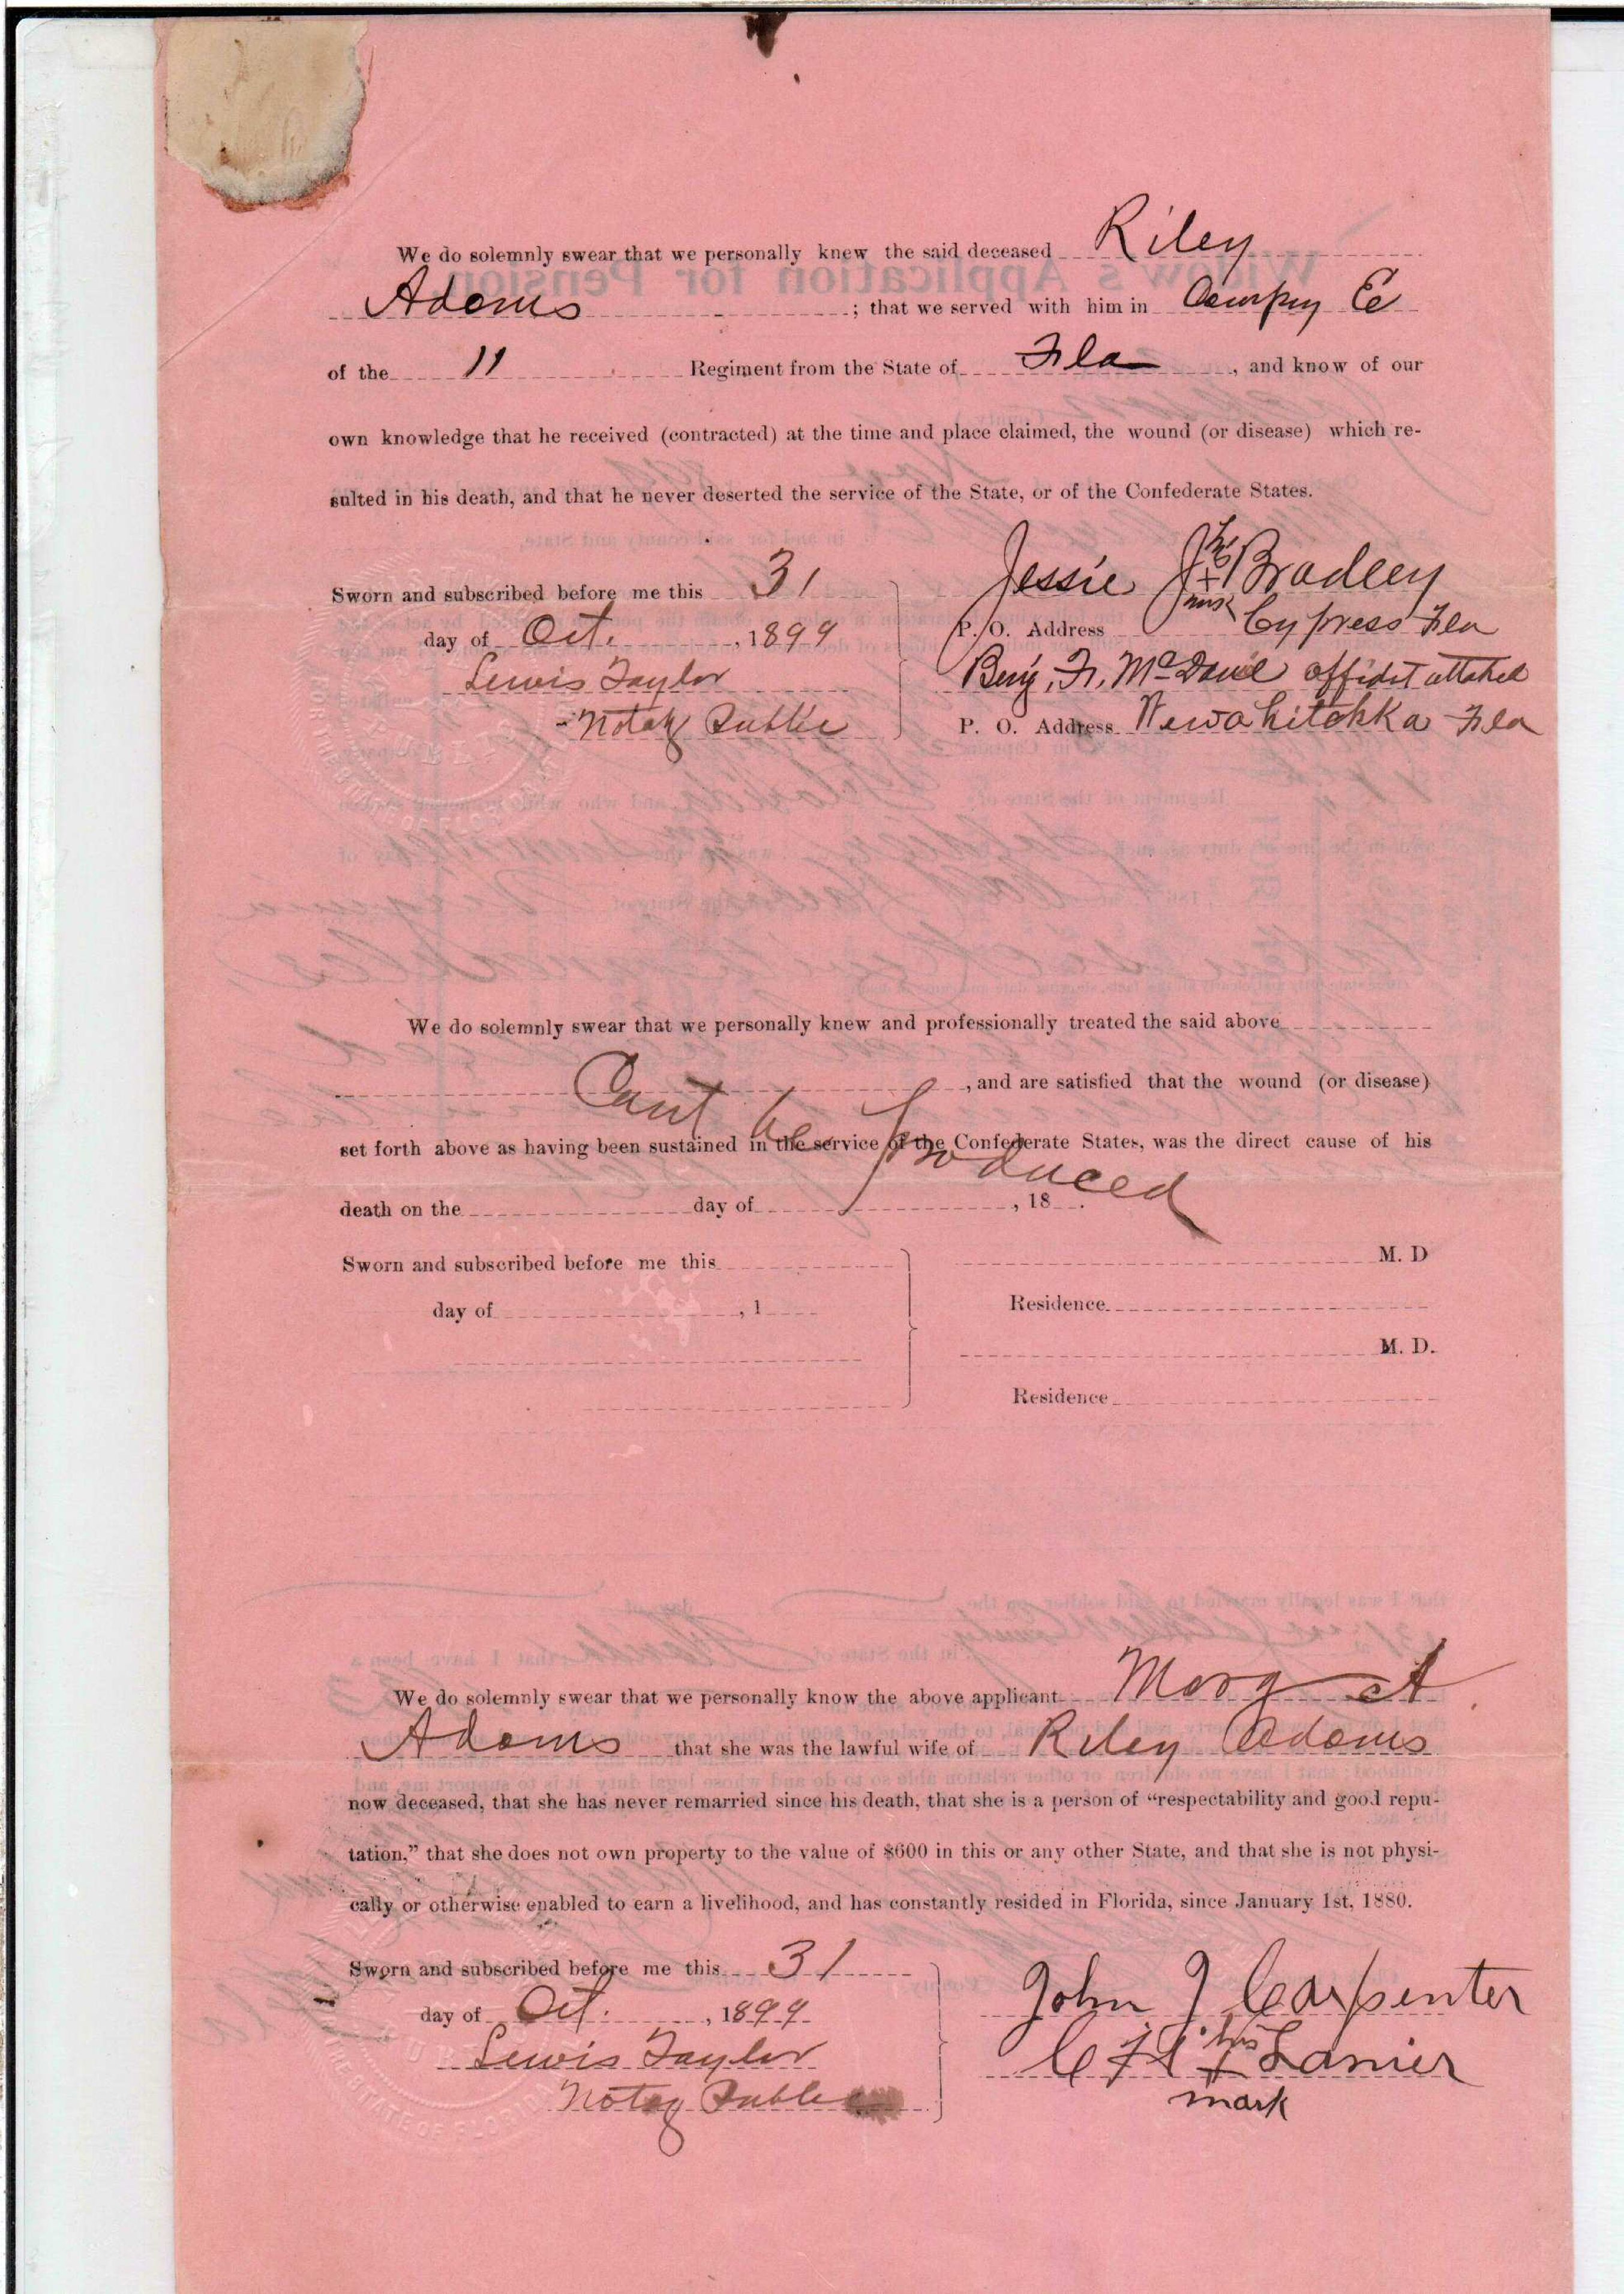 We do solemnly swear that we personally knew the said deceased Riley
Adams ; that we served with him in Compny E
of the 11 Regiment from the State of Fla , and know of our
own knowledge that he received (contracted) at the time and place claimed, the wound (or disease) which re-
sulted in his death, and that he never deserted the service of the State, or of the Confederate States.
Sworn and subscribed before me this 31
day of Oct. , 1899
Lewis Taylor
Notary Public
his
Jessie J + Bradley
mark
P. O. Address Cypress Fla
Benj. F. McDaniel affidvt attached
P. O. Address Wewahitchka Fla
We do solemnly swear that we personally knew and professionally treated the said above
, and are satisfied that the wound (or disease)
Cant be produced
set forth above as having been sustained in the service of the Confederate States, was the direct cause of his
death on the day of , 18 .
Sworn and subscribed before me this
day of , 1
M. D
Residence
M. D.
Residence
We do solemnly swear that we personally know the above applicant Margret
Adams that she was the lawful wife of Riley Adams
now deceased, that she has never remarried since his death, that she is a person of “respectability and good repu-
tation,” that she does not own property to the value of $600 in this or any other State, and that she is not physi-
cally or otherwise enabled to earn a livelihood, and has constantly resided in Florida, since January 1st, 1880.
Sworn and subscribed before me this 31
day of Oct. , 1899
Lewis Taylor
Notary Public
John J Carpenter
his
+ Lanier
mark